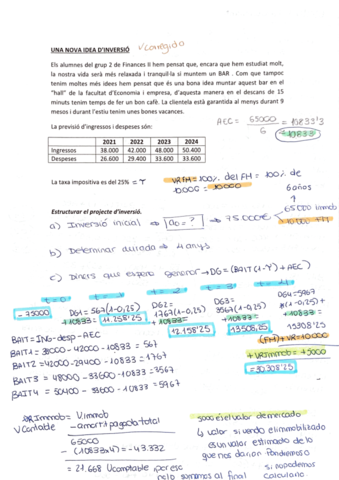 UNA NOVA IDEA D'INVERSIÓ ✓Corregido
Els alumnes del grup 2 de Finances II hem pensat que, encara que hem estudiat molt,
la nostra vida serà més relaxada i tranquil·la si muntem un BAR . Com que tampoc
tenim moltes més idees hem pensat que és una bona idea muntar aquest bar en el
"hall" de la facultat d'Economia i empresa, d'aquesta manera en el descans de 15
minuts tenim temps de fer un bon cafè. La clientela està garantida al menys durant 9
mesos i durant l'estiu tenim unes bones vacances.
AEC = 65000 / 6 = 10833'3
≈10833
La previsió d'ingressos i despeses són:
2021 2022 2023 2024
Ingressos 38.000 42.000 48.000 50.400
Despeses 26.600 29.400 33.600 33.600
La taxa impositiva es del 25% = T
VRFM = 100% del FM = 100% de
10000 = 10000
6 años
65000 inmob
10000 FM
Estructurar el projecte d'inversió.
a) Inversió inicial → a0 = ? → 75000€
b) Determinar durada → 4 anys
c) Diners que espero generar → DG = (BAIT(1-T) + AEC)
t=0 t=1 t=2 t=3 t=4
- 75000
DG1 = 567(1-0,25)
+10833 = 11.258'25
DG2 =
1767(1-0,25)
+10833 =
12.158'25
DG3 =
3567(1-0,25)
+10833 =
13508,25
DG4 = 5967
(1-0,25) +
+10833 =
15308'25
(FM) + VR = 10000
+ VRInmob = +5000
= 30.308'25
BAIT = ING - desp - AEC
BAIT1 = 38000 - 42000 - 10833 = 567
BAIT2 = 42000 - 29400 - 10833 = 1767
BAIT3 = 48000 - 33600 - 10833 = 3567
BAIT4 = 50400 - 33600 - 10833 = 5967
VRInmob = V.inmob
VContable - amort. pagada total
65000
- (10833x4) = -43.332
= 21.668 Vcomptable
pelo sumamos al final
5000 es el valor de mercado
y valor si vendo el inmobilizado
es un valor estimado de lo
que nos darían Pondremos
si podemos
calcularlo